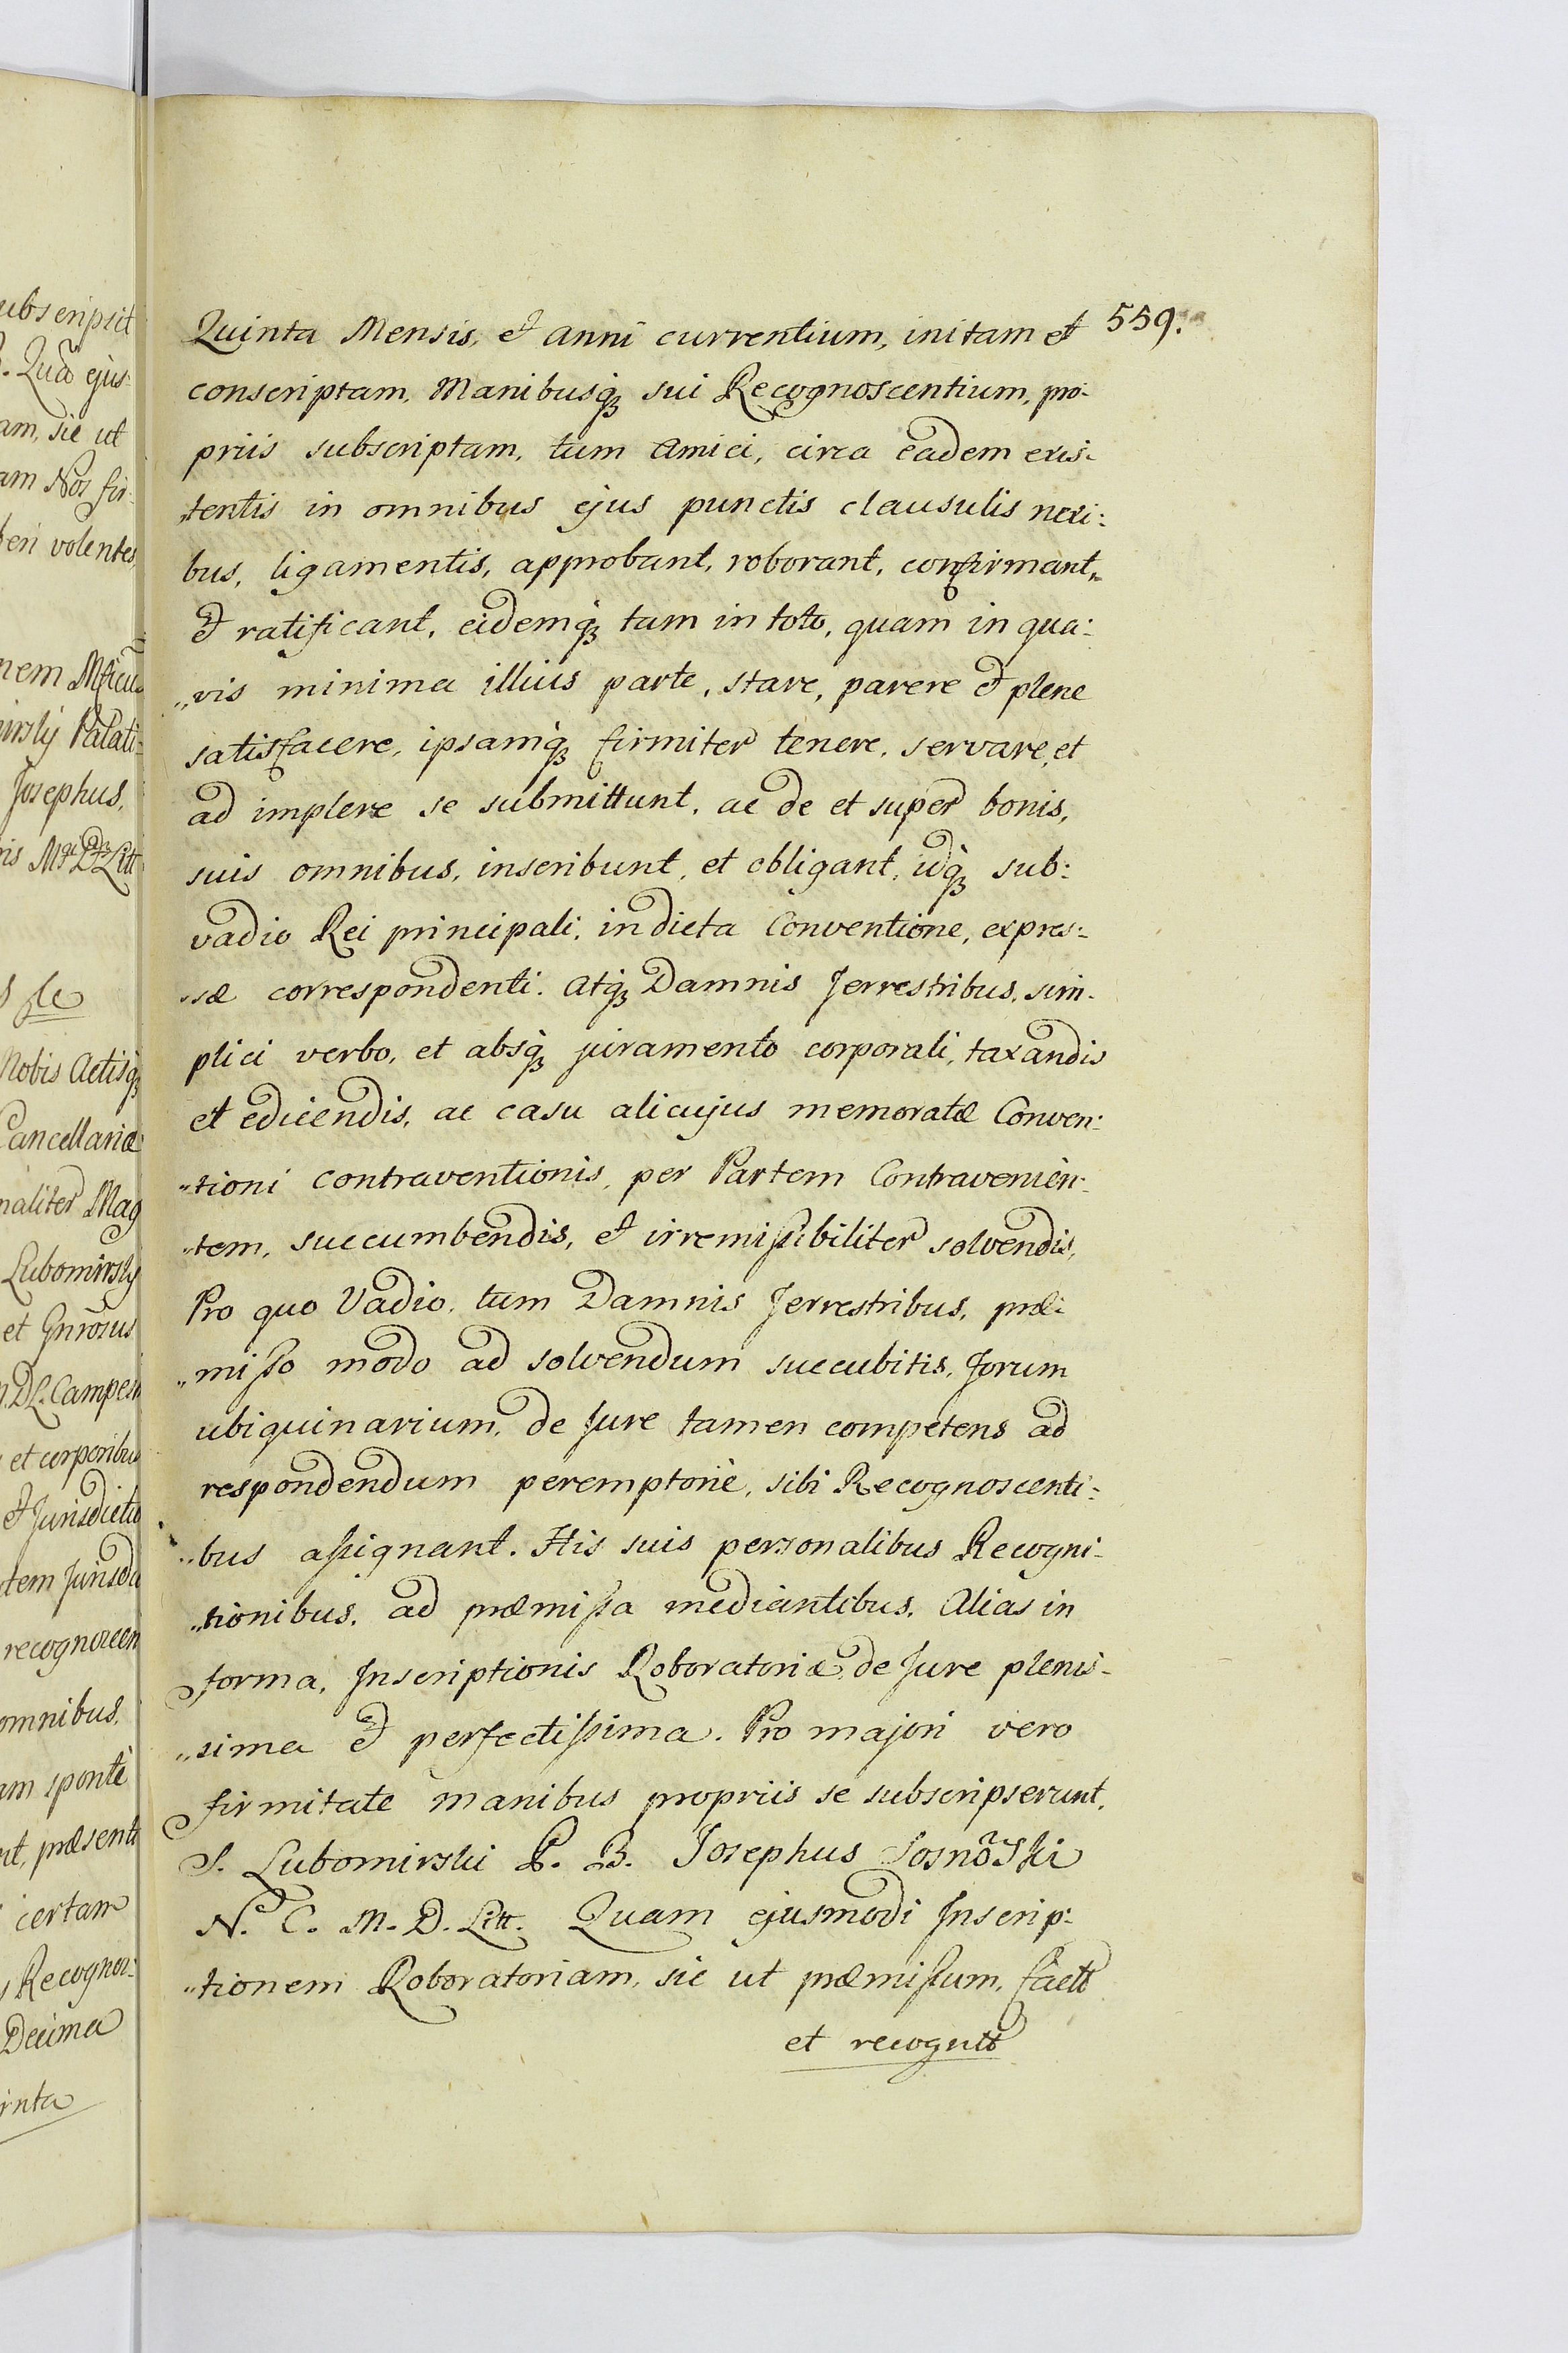 559.
Quinta Mensis, et anni currentium, initam et
conscriptam, Manibusq́ꝫ sui Recognoscentium, pro-
priis subscriptam, tum Amici, circa eadem exis-
„tentis in omnibus ejus punctis clausulis nexi:
bus, ligamentis, approbant, roborant, confirmant,
et ratificant, eidemq́ꝫ tam in toto, quam in qua:
„vis minima illius parte, stare, parere et plene
satisfacere, ipsamq́ꝫ firmiter tenere, servare, et
ad implere se submittunt, ac de et super bonis,
suis omnibus, inscribunt, et obligant, idq́ꝫ sub:
vadio Rei principali, in dicta Conventione, expres:
„sæ correspondenti. Atq́ꝫ Damnis Terrestribus, sim-
plici verbo, et absq́ꝫ juramento corporali, taxandis
et edicendis, ac casu alicujus memoratæ Conven:
„tioni contraventionis, per Partem Contravenien:
„tem, succumbendis, et irremissibiliter solvendis,
Pro quo Vadio, tum Damnis Terrestribus, præ:
„misso modo ad solvendum succubitis, Forum
ubiquinarium, de Jure tamen competens ad
respondendum peremptoriè, sibi Recognoscenti:
„bus assignant. His suis personalibus Recogni-
„tionibus, ad præmissa mediantibus. Alias in
forma, Inscriptionis Roboratoriæ, de Jure plenis-
„sima et perfectissima. Pro majori vero
firmitate manibus propriis se subscripserunt.
S. Lubomirski P. B. Josephus Sosnõski
N. C. M. D. Litt. Quam ejusmodi Inscrip:
„tionem Roboratoriam, sic ut præmissum, fact
et recognit
ubscripsit
ejus:
am, sic ut
am Nos fir:
beri volentes,
Palati:
Josephus,
Nobis Actisq́ꝫ
Cancellariæ
naliter Mag
Lubomirsky
et Gnrõsus
D L. Campestr
et corporibus
et Jurisdictio
tem Jurisdi
recognoscen
omnibus,
am spontè
præsent
certam
Recognos:
Decima
inta